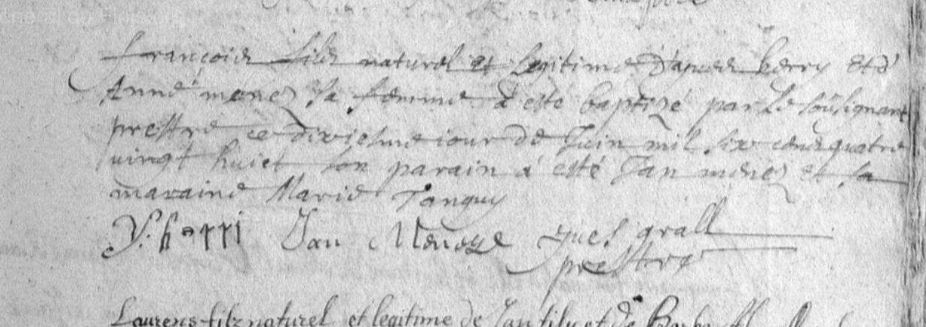 françois filz naturel et legitime d'ances kerry et d'
Anne menez sa femme a esté baptizé par le soubsignant
prestre ce dixiesme iour de Juin mil six cens quatre
vingt huict son parain à esté Jan menez et sa
maraine Marie Tanguy
Y: herri Jan Menez yues grall
prestre
Laurens filz naturel et legitime de Jan et de